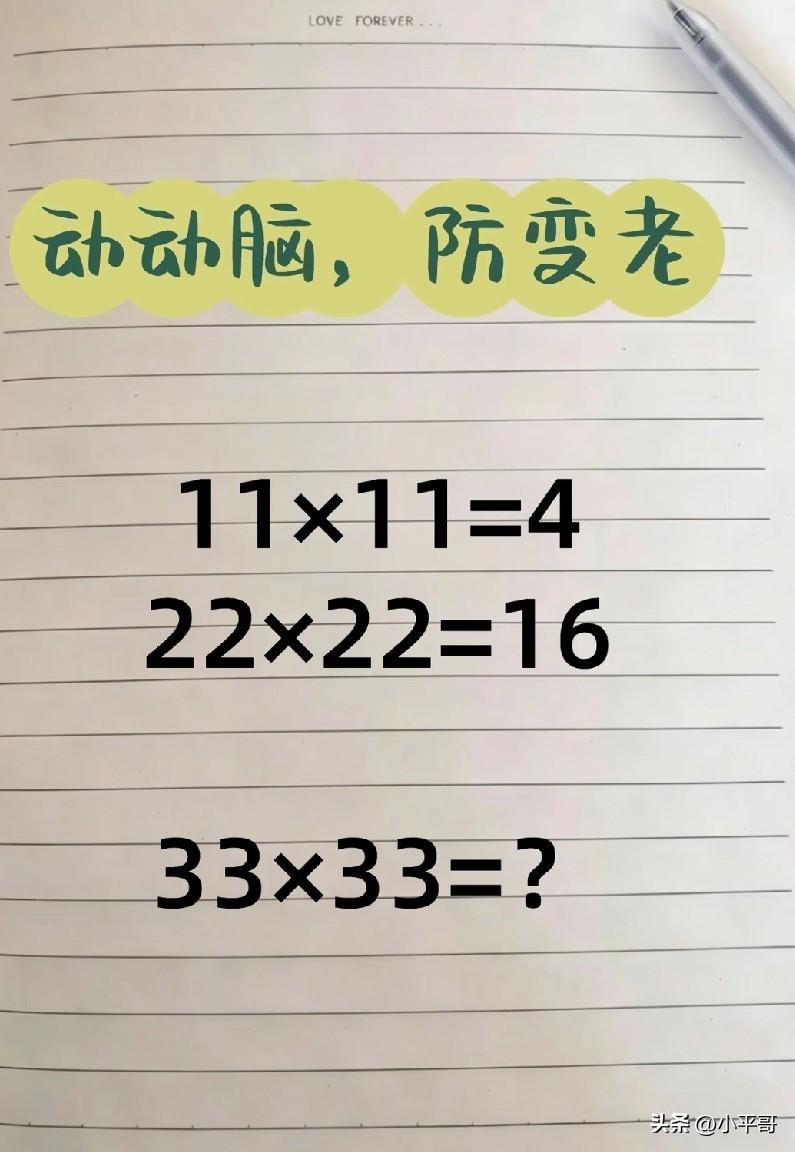 LOVE FOREVER...
动动脑，防变老
11×11=4
22×22=16
33×33=?
头条 @小平哥